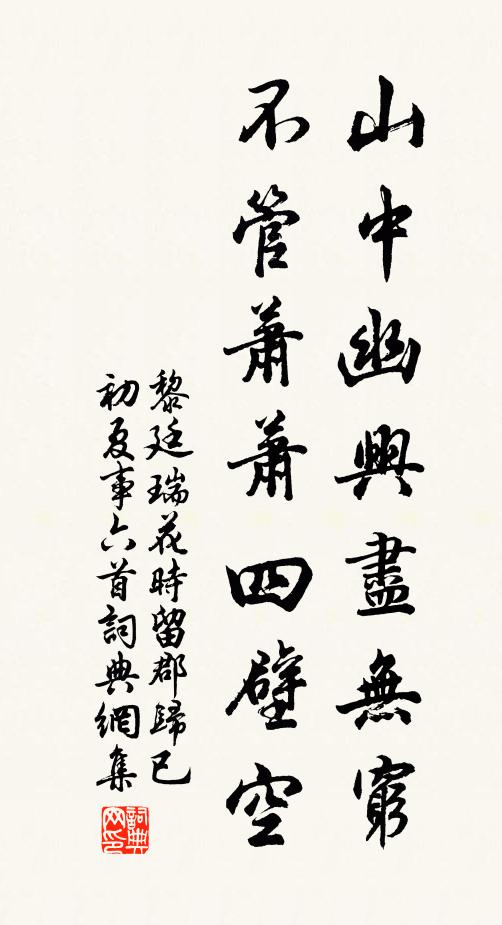 山中幽興盡無窮
不管蕭蕭四壁空
黎廷瑞花時留郡歸已
初夏事六首詞典網集
詞典網印